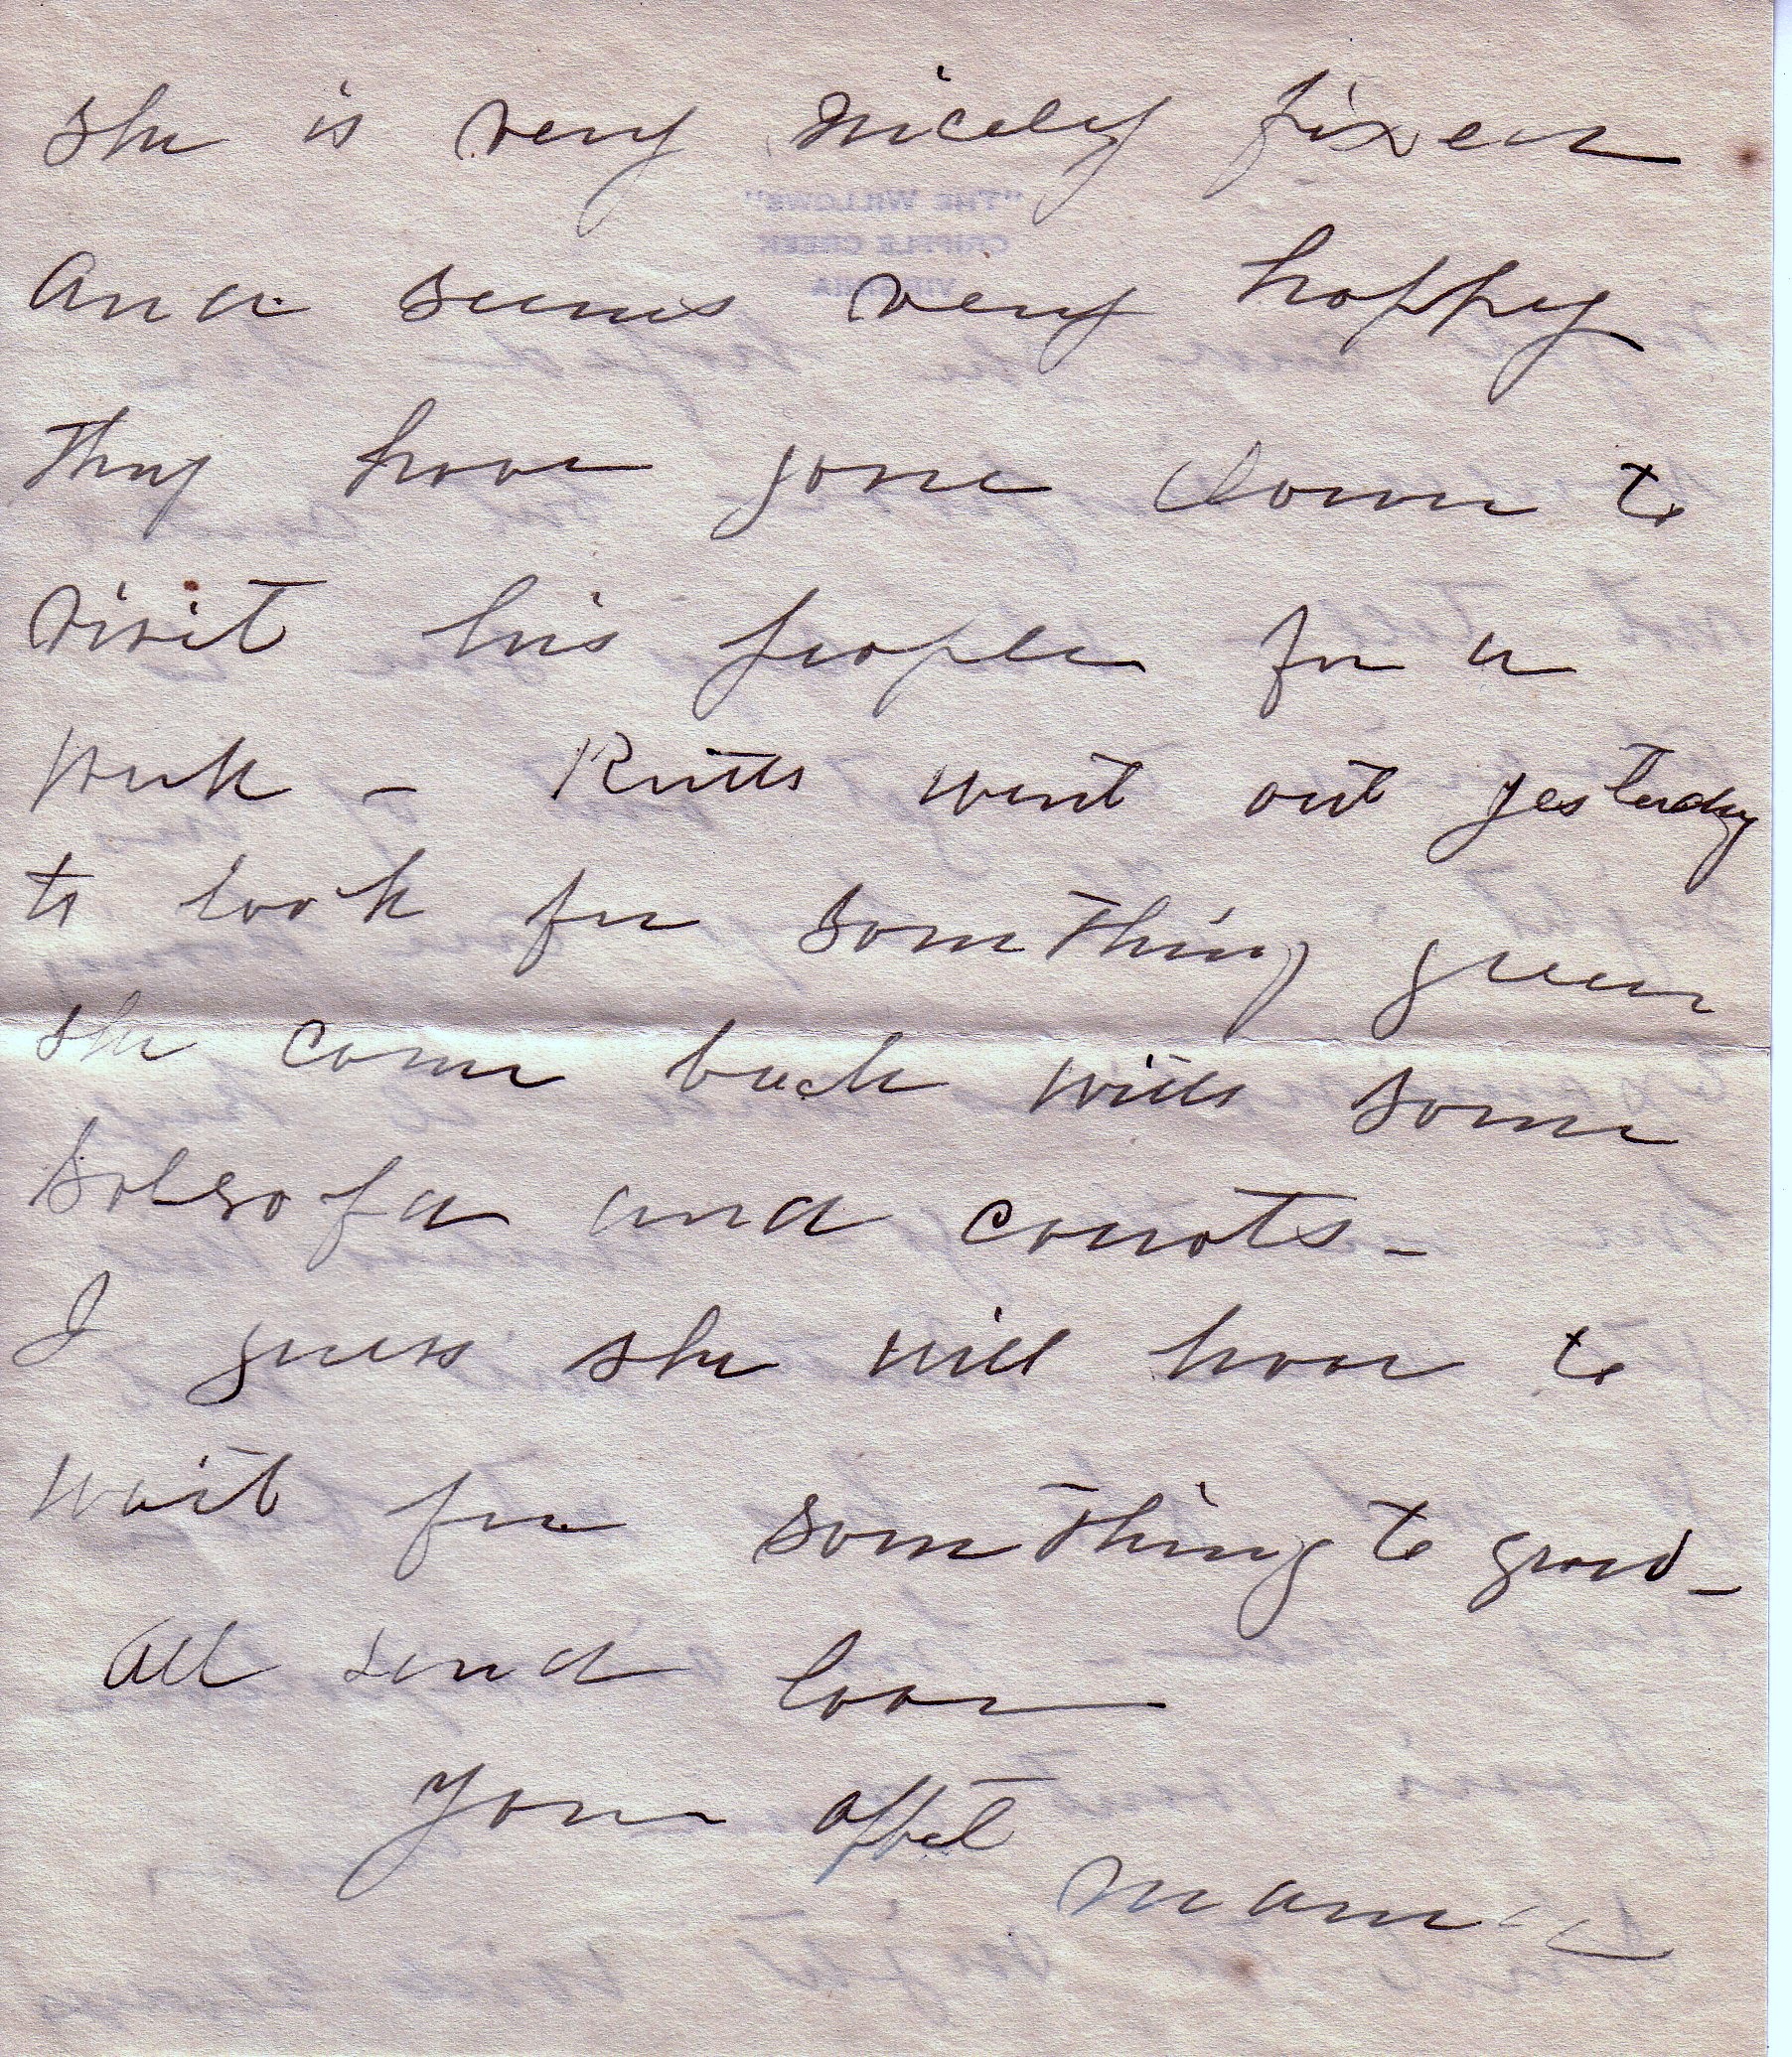 she is very nicely fixed
and seems very happy
They have gone down to
visit his people for a
week - Ruth went out yesterday
to look for something green
she come back with some
and carrots -
I guess she will have to
wait for something to grow -
All send love
Your affect
Mama
"THE WILLOWS"
CRIPPLE CREEK
VIRGINIA